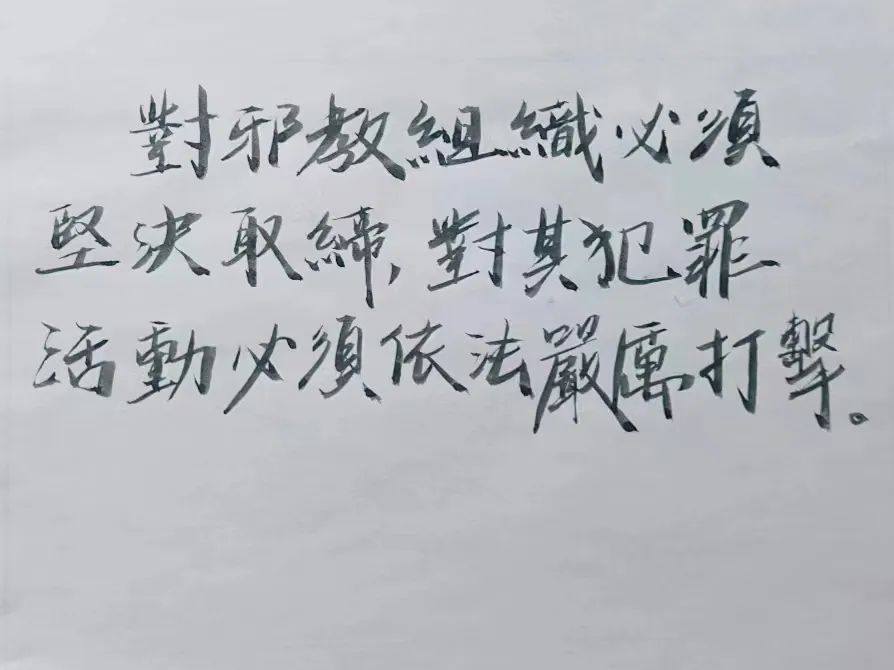 對邪教組織必須
堅決取締,對其犯罪
活動必須依法嚴厲打擊。